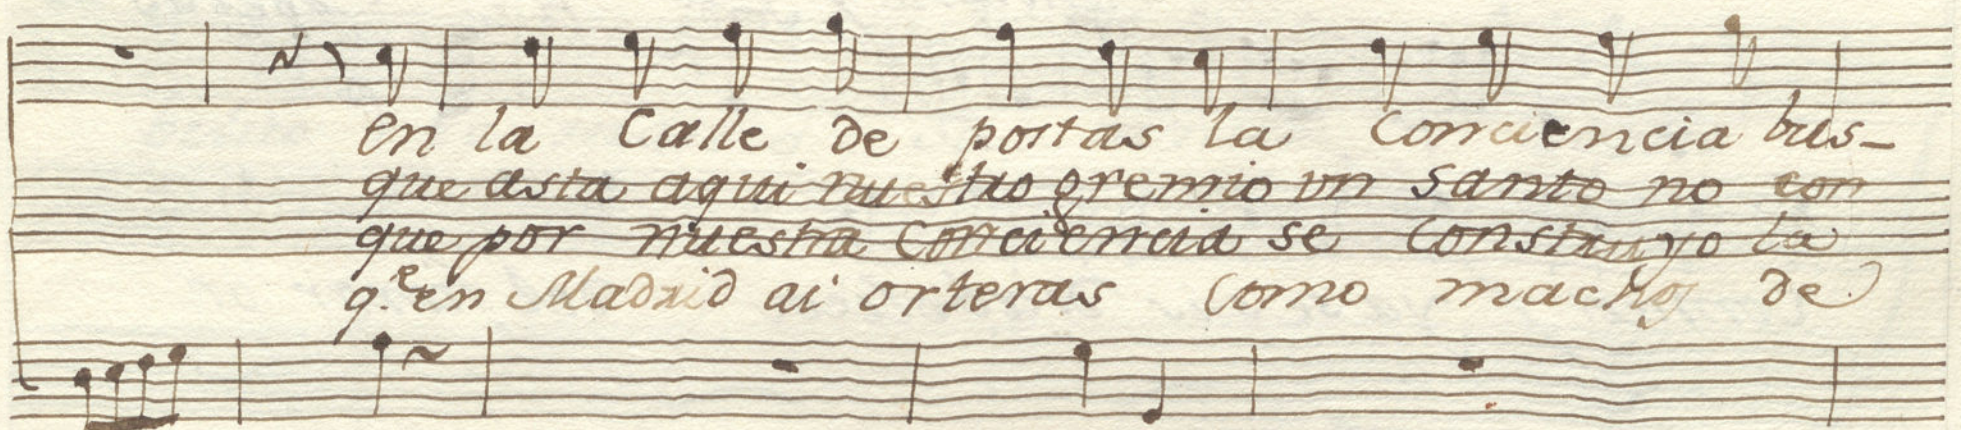 en la Calle de postas la Conciencia bus-
que asta aqui nuestro gremio vn Santo no con
que por nuestra Conciencia se Construyo la
q.e en Madrid ai orteras Como machos de